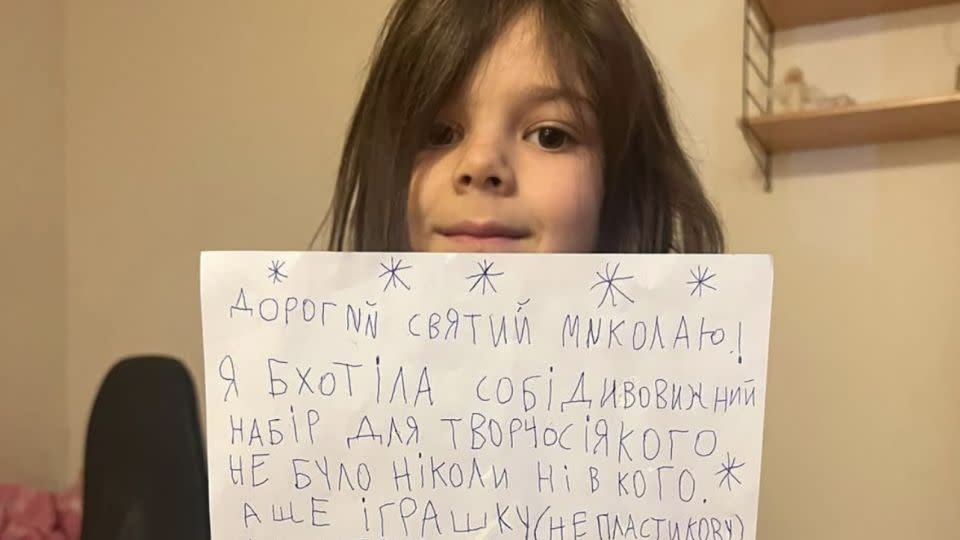 ДОРОГИЙ СВЯТИЙ МИКОЛАЮ!
Я БХОТІЛА СОБІ ДИВОВИЖНИЙ
НАБІР ДЛЯ ТВОРЧОСІ ЯКОГО
НЕ БУЛО НІКОЛИ НІ В КОГО.
А ЩЕ ІГРАШКУ (НЕ ПЛАСТИКОВУ)